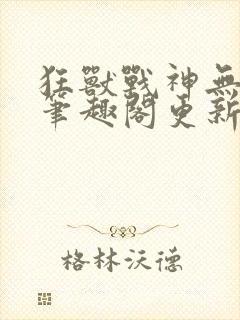 狂獸戰神無
筆趣閣更新
格林沃德